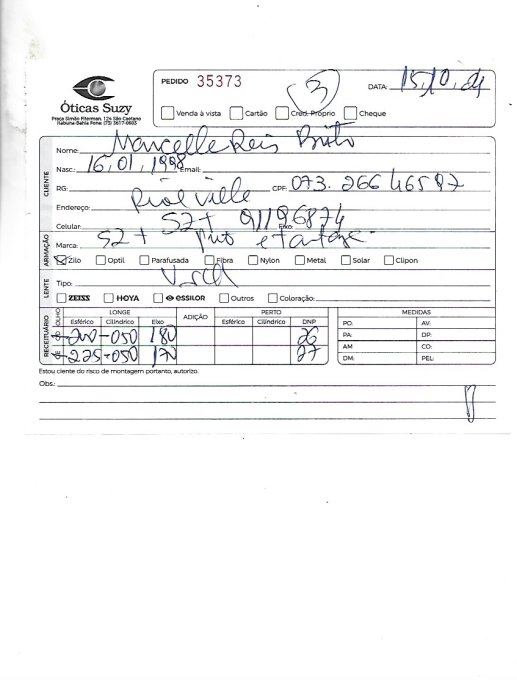 PEDIDO 35373
3
DATA: 15,10,24
Óticas Suzy
Praça Simão Fiterman, 124 São Caetano
Itabuna-Bahia Fone: (73) 3617-0603
Venda à vista Cartão Cred. Próprio Cheque
CLIENTE
Nome: Marcelle Reis Brito
Nasc: 16,01,1998 Email:
RG: CPF: 073.266 465 97
Endereço:
Celular: 91196874 Fixo:
ARMAÇÃO
Marca: 52+
Zilo Optil Parafusada Fibra Nylon Metal Solar Clipon
LENTE
Tipo:
ZEISS HOYA essilor Outros Coloração:
RECEITUÁRIO
OLHO LONGE ADIÇÃO PERTO MEDIDAS
Esférico Cilíndrico Eixo Esférico Cilíndrico DNP PO: AV:
OD -200 -050 180 26 PA: DP:
OE -225 -050 170 27 AM CO:
DM: PEL:
Estou ciente do risco de montagem portanto, autorizo.
Obs.: